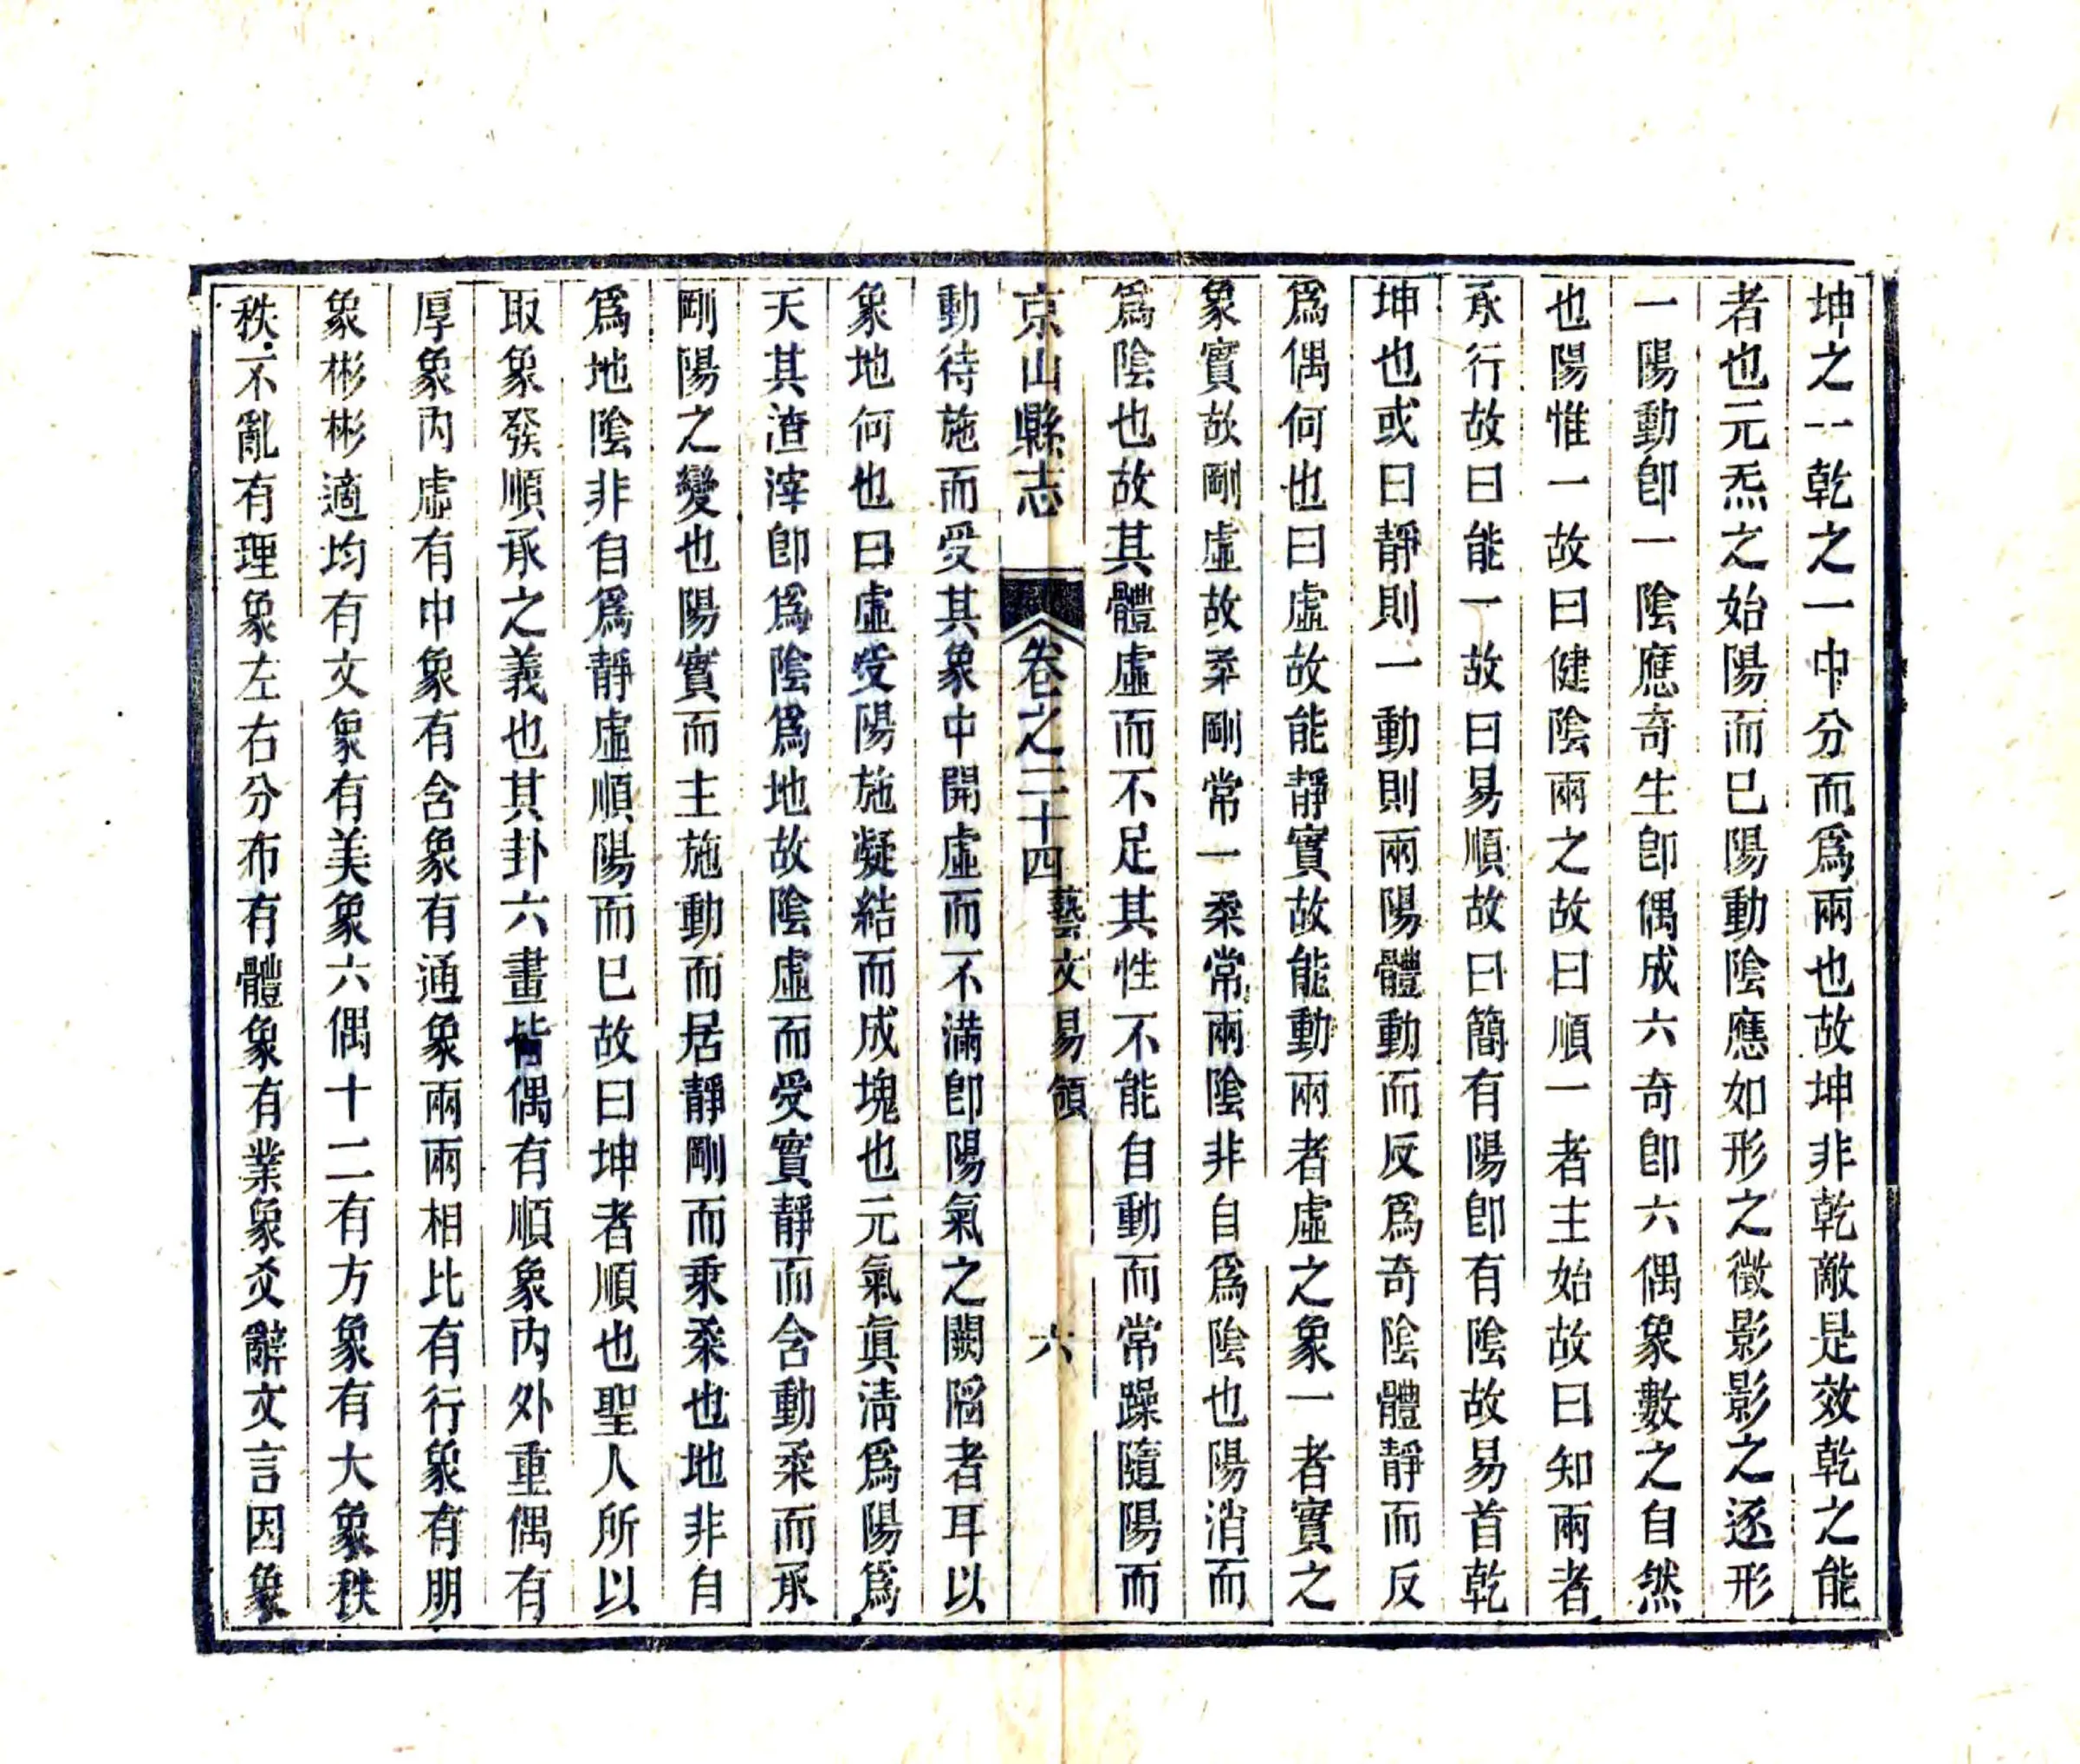 坤之一乾之一中分而爲兩也故坤非乾敵是效乾之能
者也元炁之始陽而已陽動陰應如形之徵影影之逐形
一陽動卽一陰應奇生卽偶成六奇卽六偶象數之自然
也陽惟一故曰健陰兩之故曰順一者主始故曰知兩者
承行故曰能一故曰易順故曰簡有陽卽有陰故易首乾
坤也或曰靜則一動則兩陽體動而反爲奇陰體靜而反
爲偶何也曰虛故能靜實故能動兩者虛之象一者實之
象實故剛虛故柔剛常一柔常兩陰非自爲陰也陽消而
爲陰也故其體虛而不足其性不能自動而常躁隨陽而
京山縣志 卷之二十四 藝文 易領 六
動待施而受其象中開虛而不滿卽陽氣之闕陷者耳以
象地何也曰虛受陽施凝結而成塊也元氣眞淸爲陽爲
天其渣滓卽爲陰爲地故陰虛而受實靜而含動柔而承
剛陽之變也陽實而主施動而居靜剛而乘柔也地非自
爲地陰非自爲靜虛順陽而已故曰坤者順也聖人所以
取象發順承之義也其卦六畫皆偶有順象內外重偶有
厚象內虛有中象有含象有通象兩兩相比有行象有朋
象彬彬適均有文象有美象六偶十二有方象有大象秩
秩不亂有理象左右分布有體象有業象爻辭文言因象